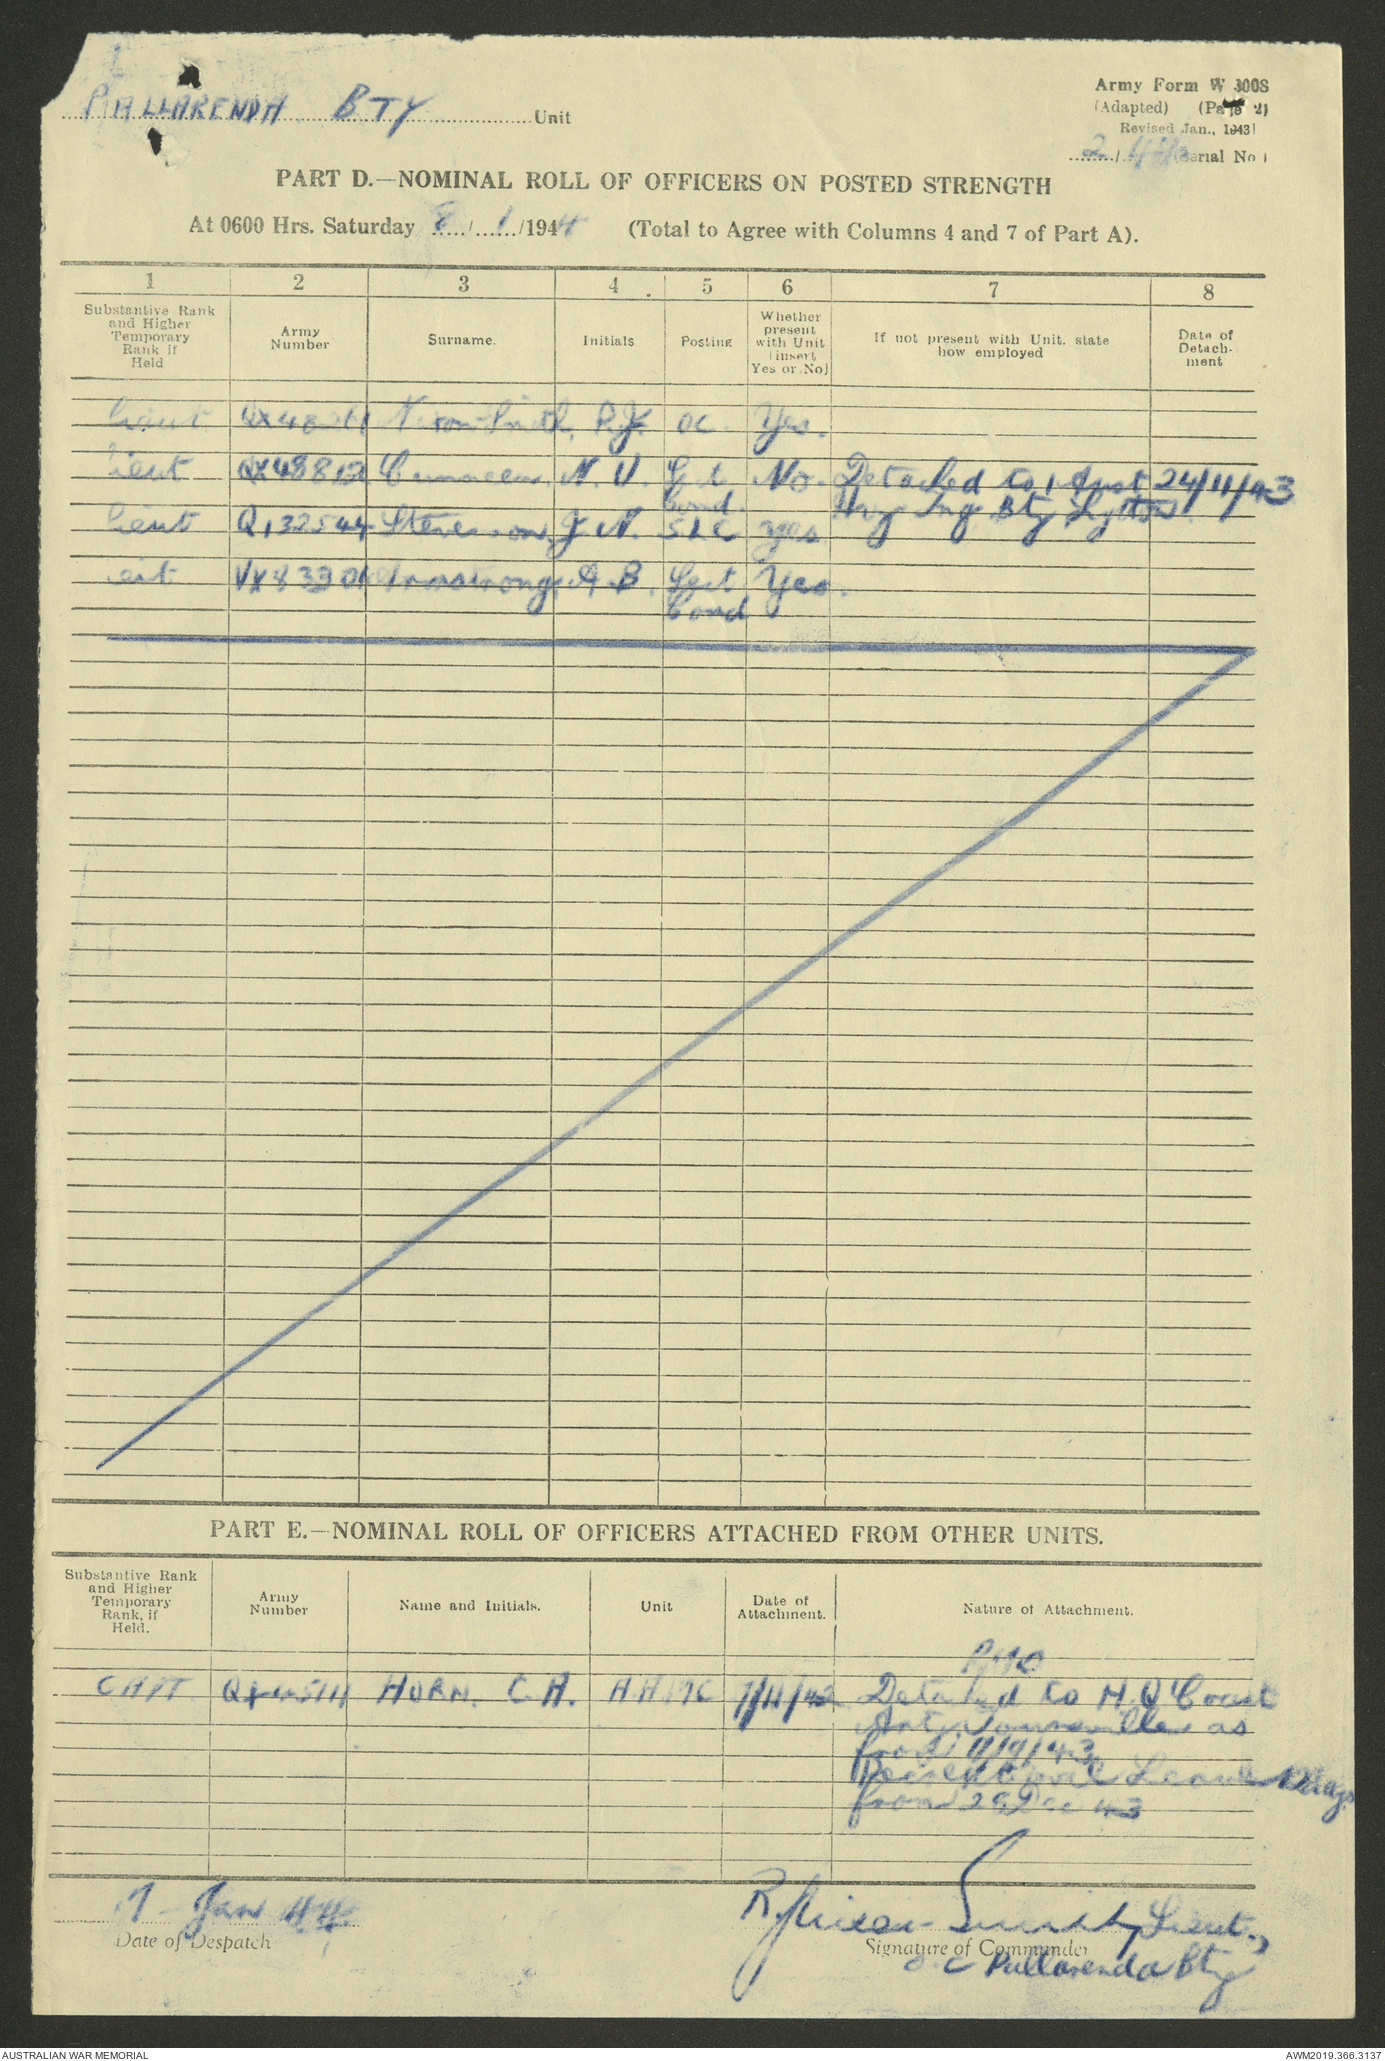 PALLARENDA BTY Unit
Army Form W 3008
(Adapted) (Page 2)
Revised Jan., 1943
2/ (Serial No)
PART D.—NOMINAL ROLL OF OFFICERS ON POSTED STRENGTH
At 0600 Hrs. Saturday 8/1/1944 (Total to Agree with Columns 4 and 7 of Part A).
1 2 3 4 5 6 7 8
Substantive Rank and Higher Temporary Rank if Held
Army Number
Surname.
Initials
Posting
Whether present with Unit (insert Yes or No)
If not present with Unit. state how employed
Date of Detachment
Lieut Smith, R.J. OC. Yes.
Lieut QX48812 N. V. No. Detached to 1 Aust 24/11/43
Cond. Hvy Trg Bty Lytton
Lieut Q132544 Stevenson, J N. SLE yes
VX83306 Armstrong, A B. Yes.
Cond
PART E.—NOMINAL ROLL OF OFFICERS ATTACHED FROM OTHER UNITS.
Substantive Rank and Higher Temporary Rank, if Held.
Army Number
Name and Initials.
Unit
Date of Attachment.
Nature of Attachment.
CAPT HORN. C.A. 7/11/42 Detached to H.Q Coast
Arty Townsville as
from
Leave
from 29 Dec 43
7 Jan 44
Date of Despatch
R J Nixon-Smith Lieut.,
Signature of Commander
O.C Pallarenda Bty
AUSTRALIAN WAR MEMORIAL
AWM2019.366.3137